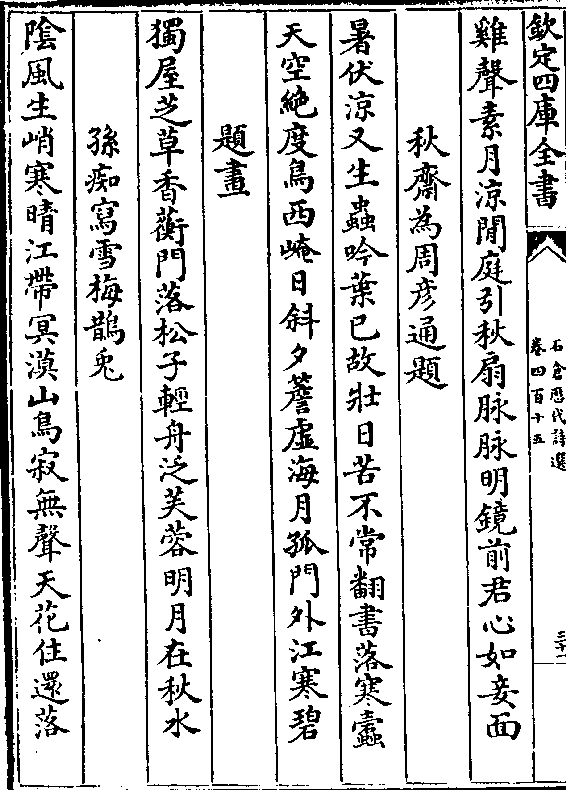 欽定四庫全書
石倉歷代詩選
卷四百十五
雞聲素月涼閒庭引秋扇脉脉明鏡前君心如妾面
秋齋為周彦通題
暑伏涼又生蟲吟葉已故壯日苦不常翻書落寒蠧
天空絶度鳥西崦日斜夕薝虚海月孤門外江寒碧
題畫
獨屋芝草香蘅門落松子輕舟泛芙蓉明月在秋水
孫痴寫雪梅鵲兎
隂風生峭寒晴江帶冥漠山鳥寂無聲天花住還落